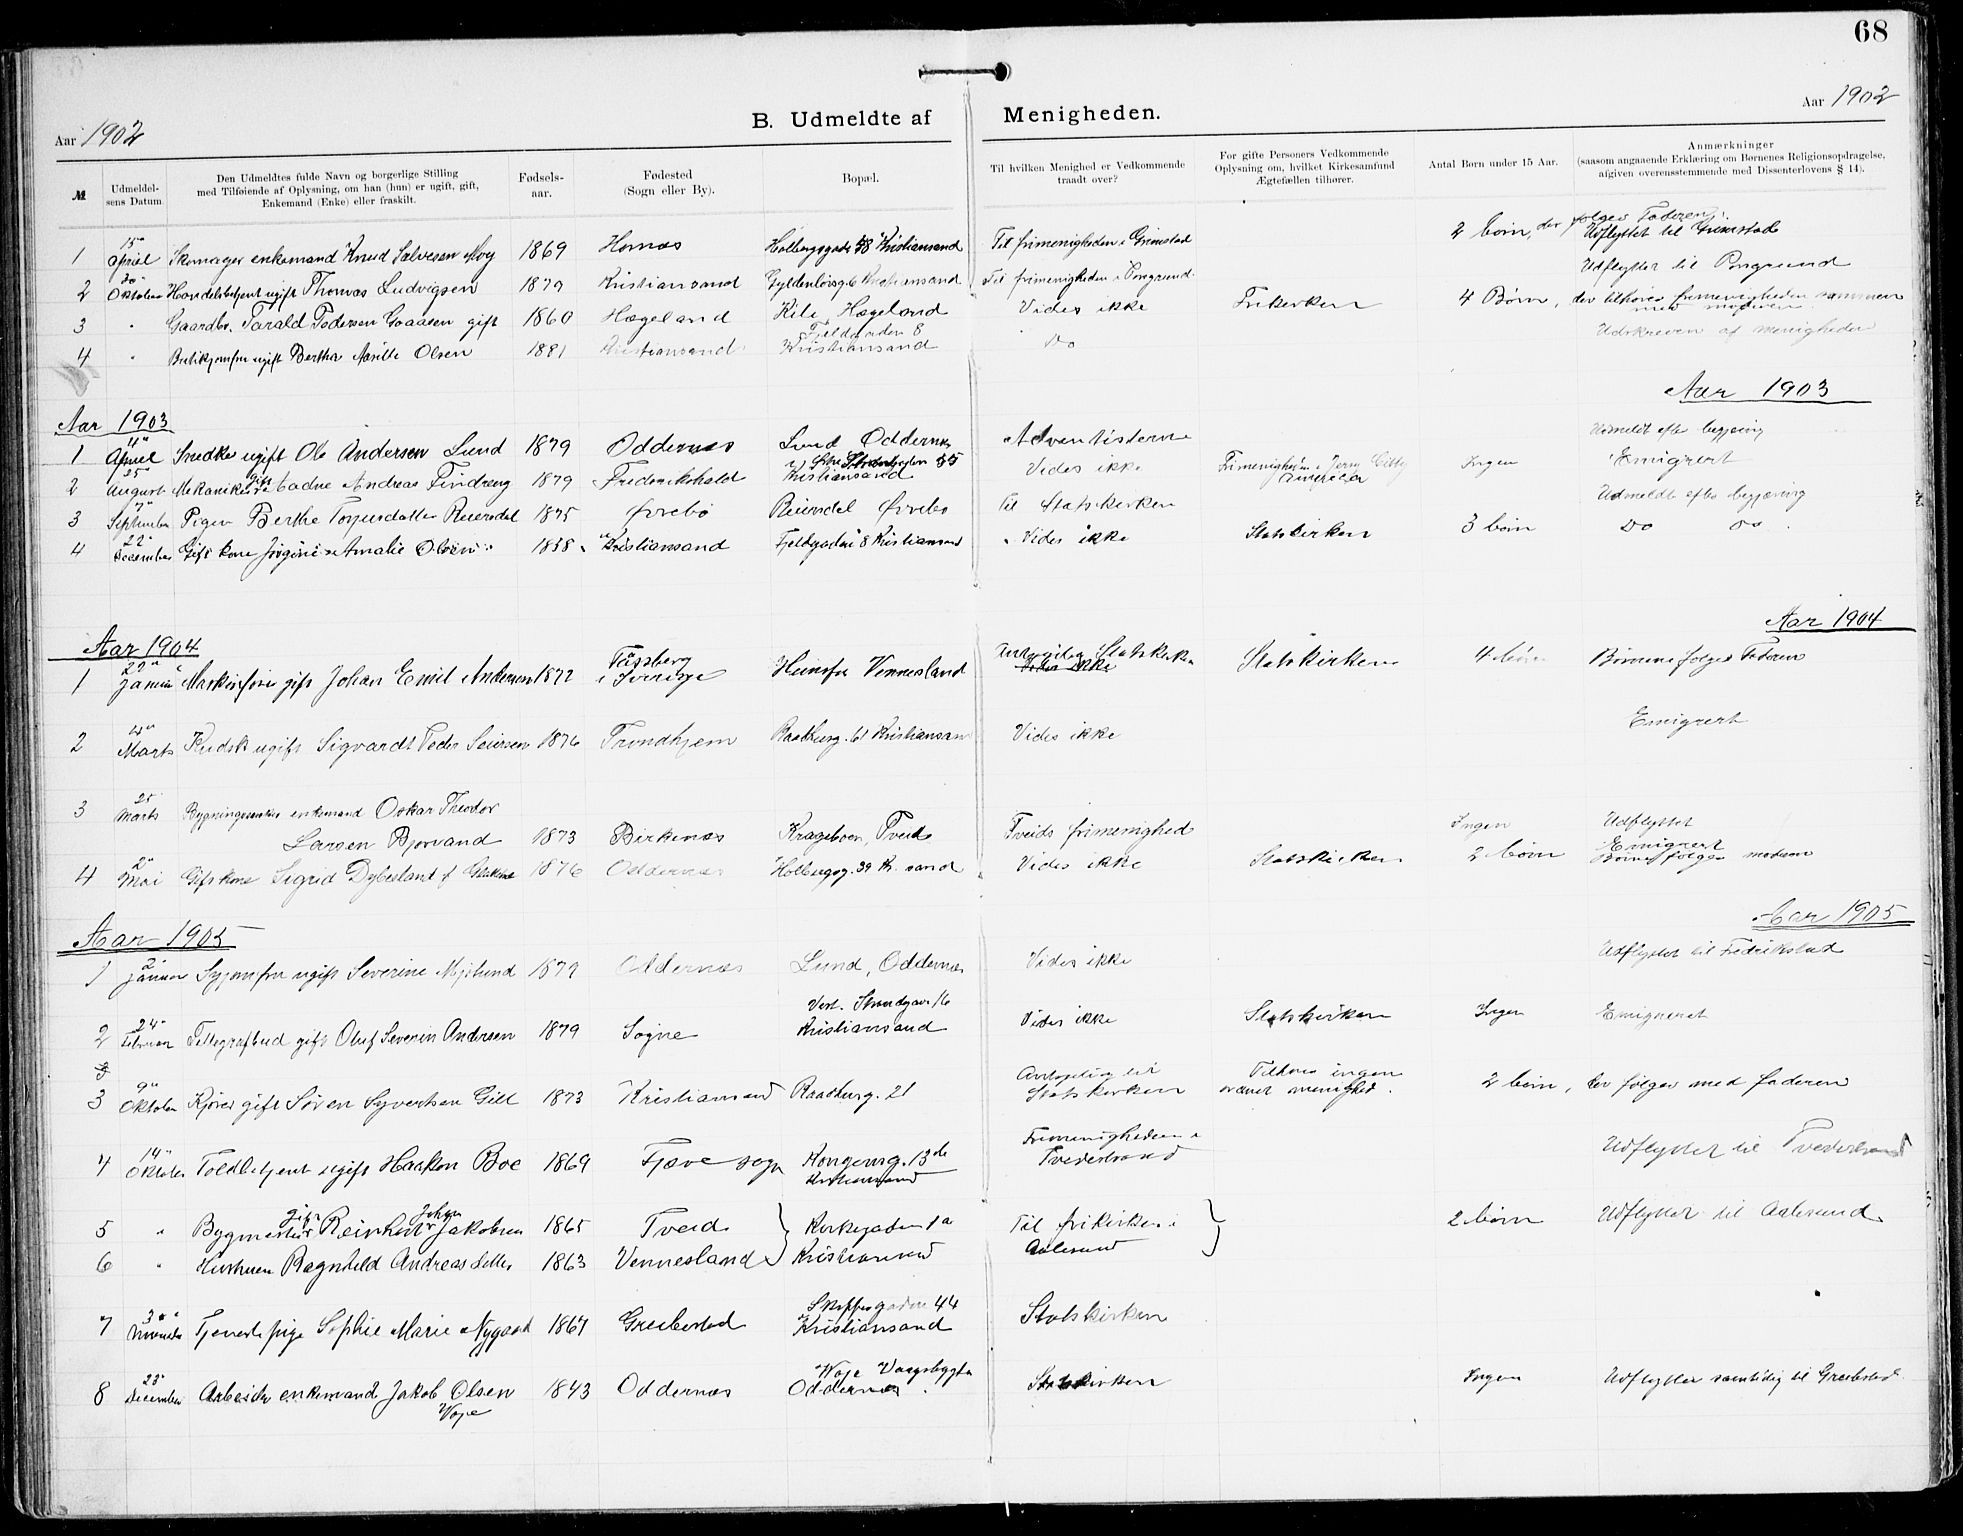 68
Aar 1902
B. Udmeldte af Menigheden.
Aar 1902
№
Udmeldelsens Datum
Den Udmeldtes fulde Navn og borgerlige Stilling med Tilføiende af Oplysning, om han (hun) er ugift, gift, Enkemand (Enke) eller fraskilt.
Fødselsaar.
Fødested (Sogn eller By).
Bopæl.
Til hvilken Menighed er Vedkommende traadt over?
For gifte Personers Vedkommende Oplysning om, hvilket Kirkesamfund Ægtefællen tilhører.
Antal Børn under 15 Aar.
Anmærkninger (saasom angaaende Erklæring om Børnenes Religionsopdragelse, afgiven overensstemmende med Dissenterlovens § 14).
1 15" April Skomager enkemand Knud Salvesen Moy 1869 Hornæs Holbergsgade 38 Kristiansand Til frimenigheden i Grimstad 2 børn, der følger Faderen. Udflyttet til Grimstad
2 30 Oktober Handelsbetjent ugift Thomas Ludvigsen 1879 Kristiansand Gyldenløvsg. 6 Kristiansand Til frimenigheden i Porsgrund Udflyttet til Porsgrund
3 " Gaardbr. Tarald Federsen Goaasen gift 1860 Hægeland Kile Hægeland Vides ikke Frikirken 4 Børn, der tilhører frimenigheden sammen med moderen
4 " Butikjomfru ugift Bertha Olsen 1881 Kristiansand Fjeldgaden 8 Kristiansand Do Udskreven af menigheden
Aar 1903
Aar 1903
1 4" April Snedker ugift Ole Andersen Lund 1879 Oddernæs Lund Oddernæs Adventisterne Udmeldt efter begjæring
2 25" August Mekaniker gift Andreas Findreng 1879 Frederikshald Strandgaden 55 Kristiansand Vides ikke Frimenigheden i Jersy Citty Amerika Ingen Emigrert
3 7" September Pigen Berthe Torjusdatter Reiersdal 1875 Øvrebø Reiersdal Øvrebø Til Statskirken Udmeldt efter begjæring
4 22" December Gift kone Jørgine Amalie Olsen 1858 Kristiansand Fjeldgaden 8 Kristiansand Vides ikke Statskirken 3 børn Do Do
Aar 1904
Aar 1904
1 29" Januar Maskinfører gift Johan Emil Andersen 1872 Tåssberg i Sverrige Hunsfos Vennesland Antagelig Statskirken Statskirken 4 børn Børnene følger Faderen
2 4" Marts Kudsk ugift Sigvardt Peder Seiersen 1876 Trondhjem Raadhusg. 61 Kristiansand Vides ikke Emigrert
3 25 Marts enkemand Oskar Theodor
Larsen Bjorvand 1873 Birkenæs Krageboen, Tveid Tveids frimenighed Ingen Udflyttet
4 2" Mai Gift kone Sigrid Dybesland 1876 Oddernæs Holbergsg. 39 Kr. sand Vides ikke Statskirken 2 børn Emigrert Børnene følger moderen
Aar 1905
Aar 1905
1 Januar Syjomfru ugift Severine Mjølund 1879 Oddernæs Lund, Oddernæs Vides ikke Udflyttet til Fredrikstad
2 24" Februar Tellegrafbud gift Oluf Severin Andersen 1879 Sogne Vest. Strandgade 16 Kristiansand Vides ikke Statskirken Ingen Emigreret
3 9" Oktober Kjører gift Søren Syvertsen Gill 1873 Kristiansand Raadhusg. 21 Antagelig til Statskirken Tilhører ingen ordnet menighed. 2 børn, der følger med faderen
4 14" Oktober Toldbetjent ugift Haakon Boe 1869 Fjære sogn Kongensg. 13 Kristiansand Frimenigheden i Tvedestrand Udflyttet til Tvedestrand
5 " Bygmester gift Reinhert Johan Jakobsen 1865 Tveid Kirkegaden 1a Kristiansand Til frikirken i Aalesund 2 børn Udflyttet til Aalesund
6 " Hustruen Ragnhild Andreasdatter 1863 Vennesland
7 30" November Tjenestepige Sophie Marie Nygaard 1867 Greibestad Skippergaden 44 Kristiansand Statskirken
8 23" December Arbeider enkemand Jakob Olsen Woje 1843 Oddernæs Woje Vaagsbygden Oddernæs Statskirken Ingen Udflytter samtidig til Greibestad.